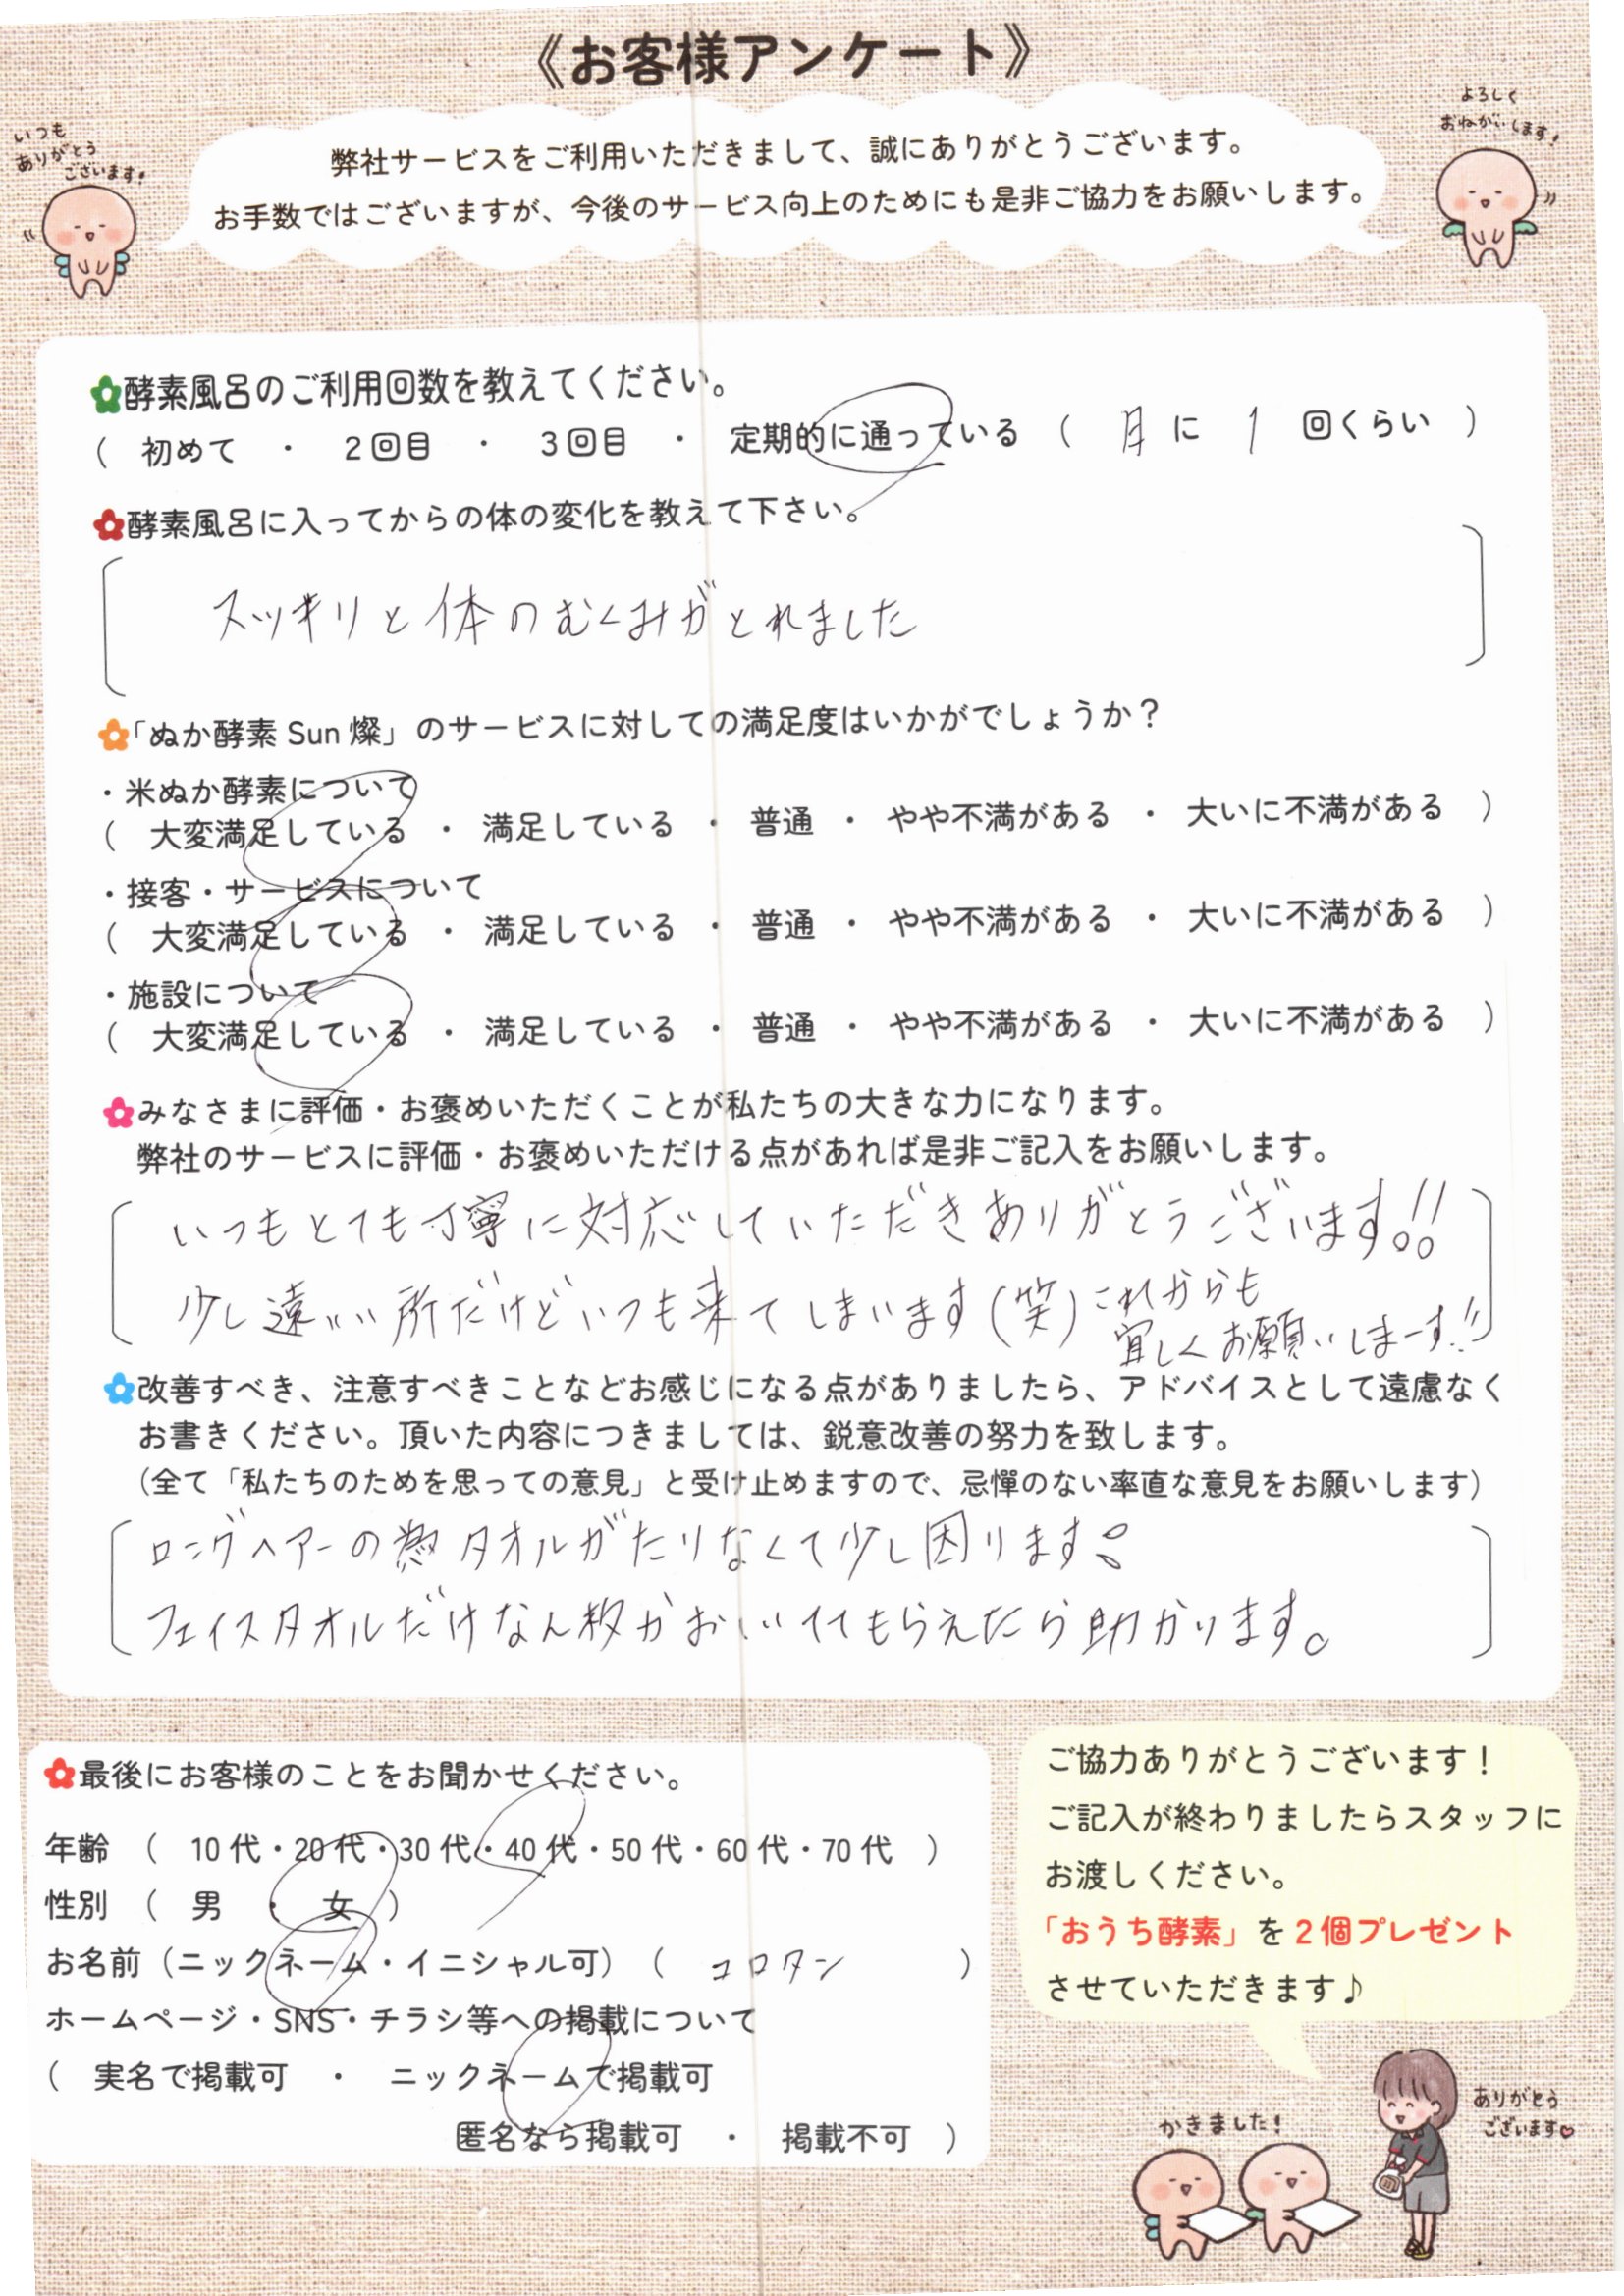 《お客様アンケート》
いつも
ありがとう
ございます!
よろしく
おねがいします!
弊社サービスをご利用いただきまして、誠にありがとうございます。
お手数ではございますが、今後のサービス向上のためにも是非ご協力をお願いします。
酵素風呂のご利用回数を教えてください。
( 初めて ・ 2回目 ・ 3回目 ・ 定期的に通っている ( 月 に 1 回くらい )
酵素風呂に入ってからの体の変化を教えて下さい。
スッキリと体のむくみがとれました
「ぬか酵素 Sun 燦」のサービスに対しての満足度はいかがでしょうか?
・米ぬか酵素について
( 大変満足している ・ 満足している ・ 普通 ・ やや不満がある ・ 大いに不満がある )
・接客・サービスについて
( 大変満足している ・ 満足している ・ 普通 ・ やや不満がある ・ 大いに不満がある )
・施設について
( 大変満足している ・ 満足している ・ 普通 ・ やや不満がある ・ 大いに不満がある )
みなさまに評価・お褒めいただくことが私たちの大きな力になります。
弊社のサービスに評価・お褒めいただける点があれば是非ご記入をお願いします。
いつもとても丁寧に対応していただきありがとうございます!!
少し遠いい所だけどいつも来てしまいます(笑)これからも
宜しくお願いしまーす!!
改善すべき、注意すべきことなどお感じになる点がありましたら、アドバイスとして遠慮なく
お書きください。頂いた内容につきましては、鋭意改善の努力を致します。
(全て「私たちのためを思っての意見」と受け止めますので、忌憚のない率直な意見をお願いします)
ロングヘアーの為タオルがたりなくて少し困ります
フェイスタオルだけなん枚かおいててもらえたら助かります。
最後にお客様のことをお聞かせください。
年齢 ( 10代・20代・30代・40代・50代・60代・70代 )
性別 ( 男 ・ 女 )
お名前(ニックネーム・イニシャル可) ( コロタン )
ホームページ・SNS・チラシ等への掲載について
( 実名で掲載可 ・ ニックネームで掲載可
匿名なら掲載可 ・ 掲載不可 )
ご協力ありがとうございます!
ご記入が終わりましたらスタッフに
お渡しください。
「おうち酵素」を2個プレゼント
させていただきます♪
かきました!
ありがとう
ございます♥